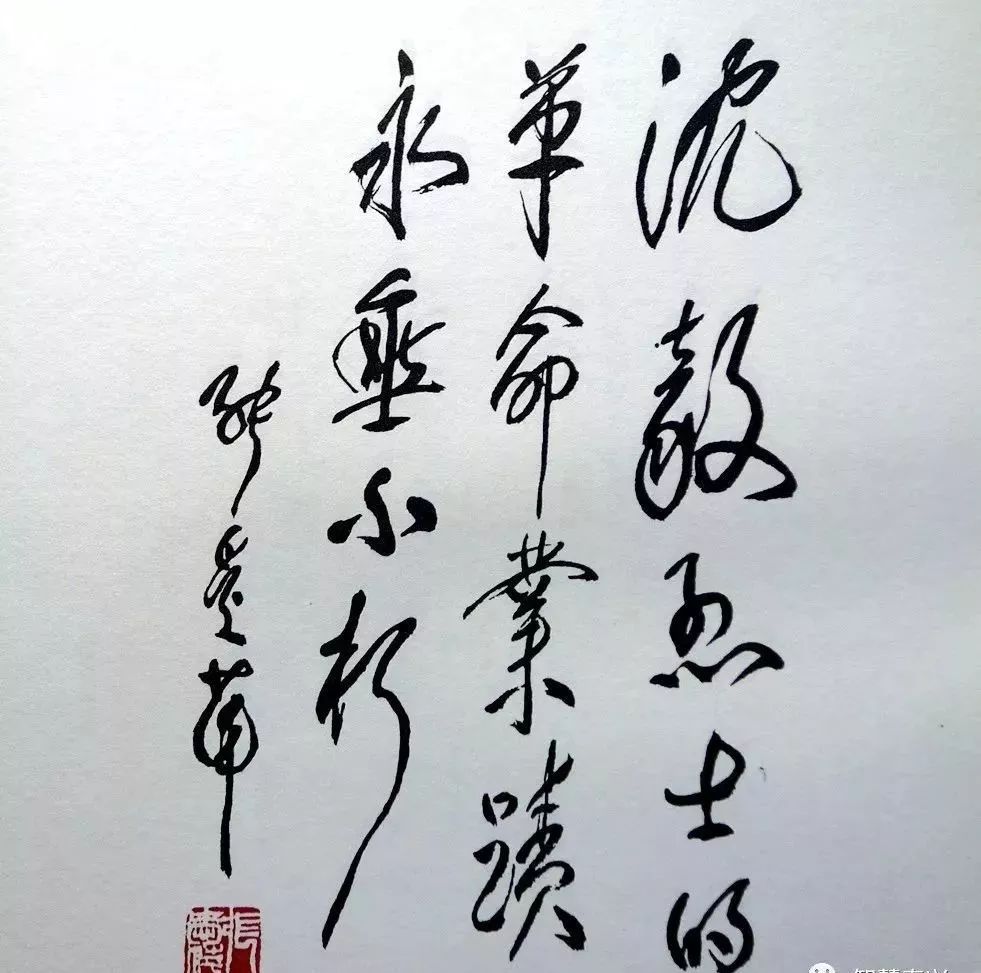 沈毅烈士的
革命業蹟
永垂不朽
張愛萍